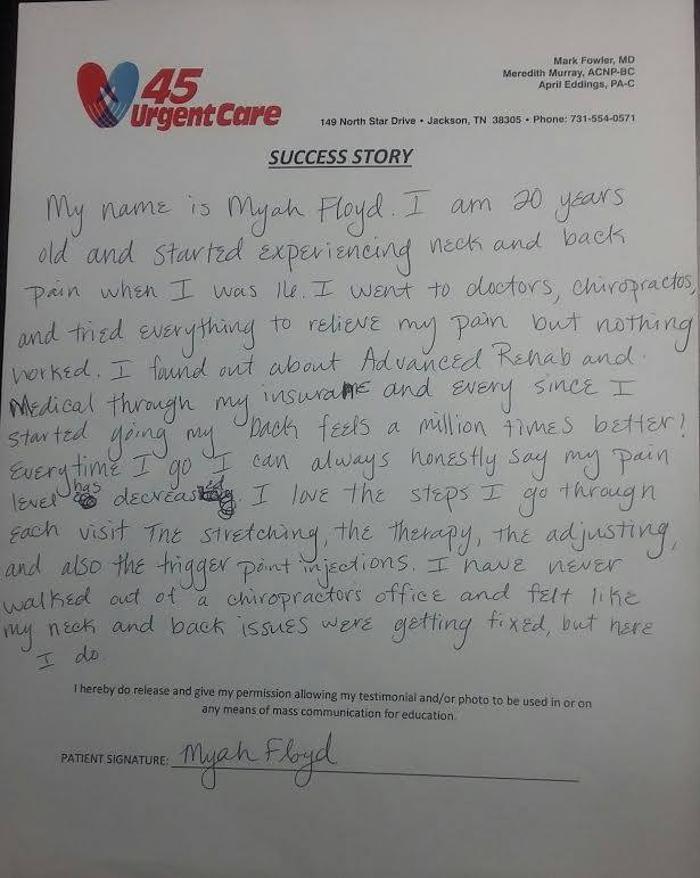 45
Urgent Care
Mark Fowler, MD
Meredith Murray, ACNP-BC
April Eddings, PA-C
149 North Star Drive • Jackson, TN 38305 • Phone: 731-554-0571
SUCCESS STORY
My name is Myah Floyd. I am 20 years
old and started experiencing neck and back
pain when I was 16. I went to doctors, chiropractos,
and tried everything to relieve my pain but nothing
worked. I found out about Advanced Rehab and
Medical through my insurance and every since I
started going my back feels a million times better!
Everytime I go I can always honestly say my pain
level has decreased. I love the steps I go through
each visit The stretching, the therapy, the adjusting,
and also the trigger point injections. I have never
walked out of a chiropractors office and felt like
my neck and back issues were getting fixed, but here
I do.
I hereby do release and give my permission allowing my testimonial and/or photo to be used in or on
any means of mass communication for education.
PATIENT SIGNATURE: Myah Floyd